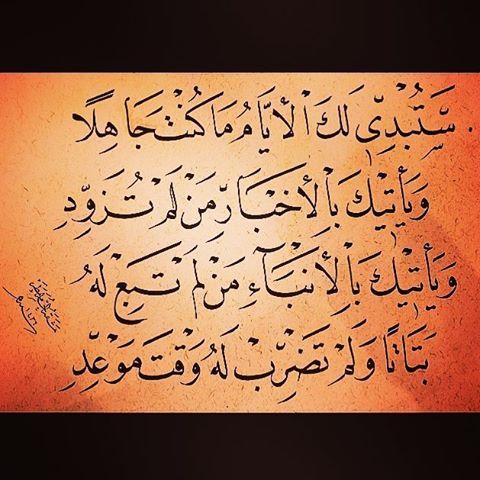 سَتُبْدِي لَكَ الْأَيَّامُ مَا كُنْتَ جَاهِلًا
وَيَأْتِيْكَ بِالْأَخْبَارِ مَنْ لَمْ تُزَوِّدِ
وَيَأْتِيْكَ بِالْأَنْبَآءِ مَنْ لَمْ تَبِعْ لَهُ
بَتَاتًا وَلَمْ تَضْرِبْ لَهُ وَقْتَ مَوْعِدِ